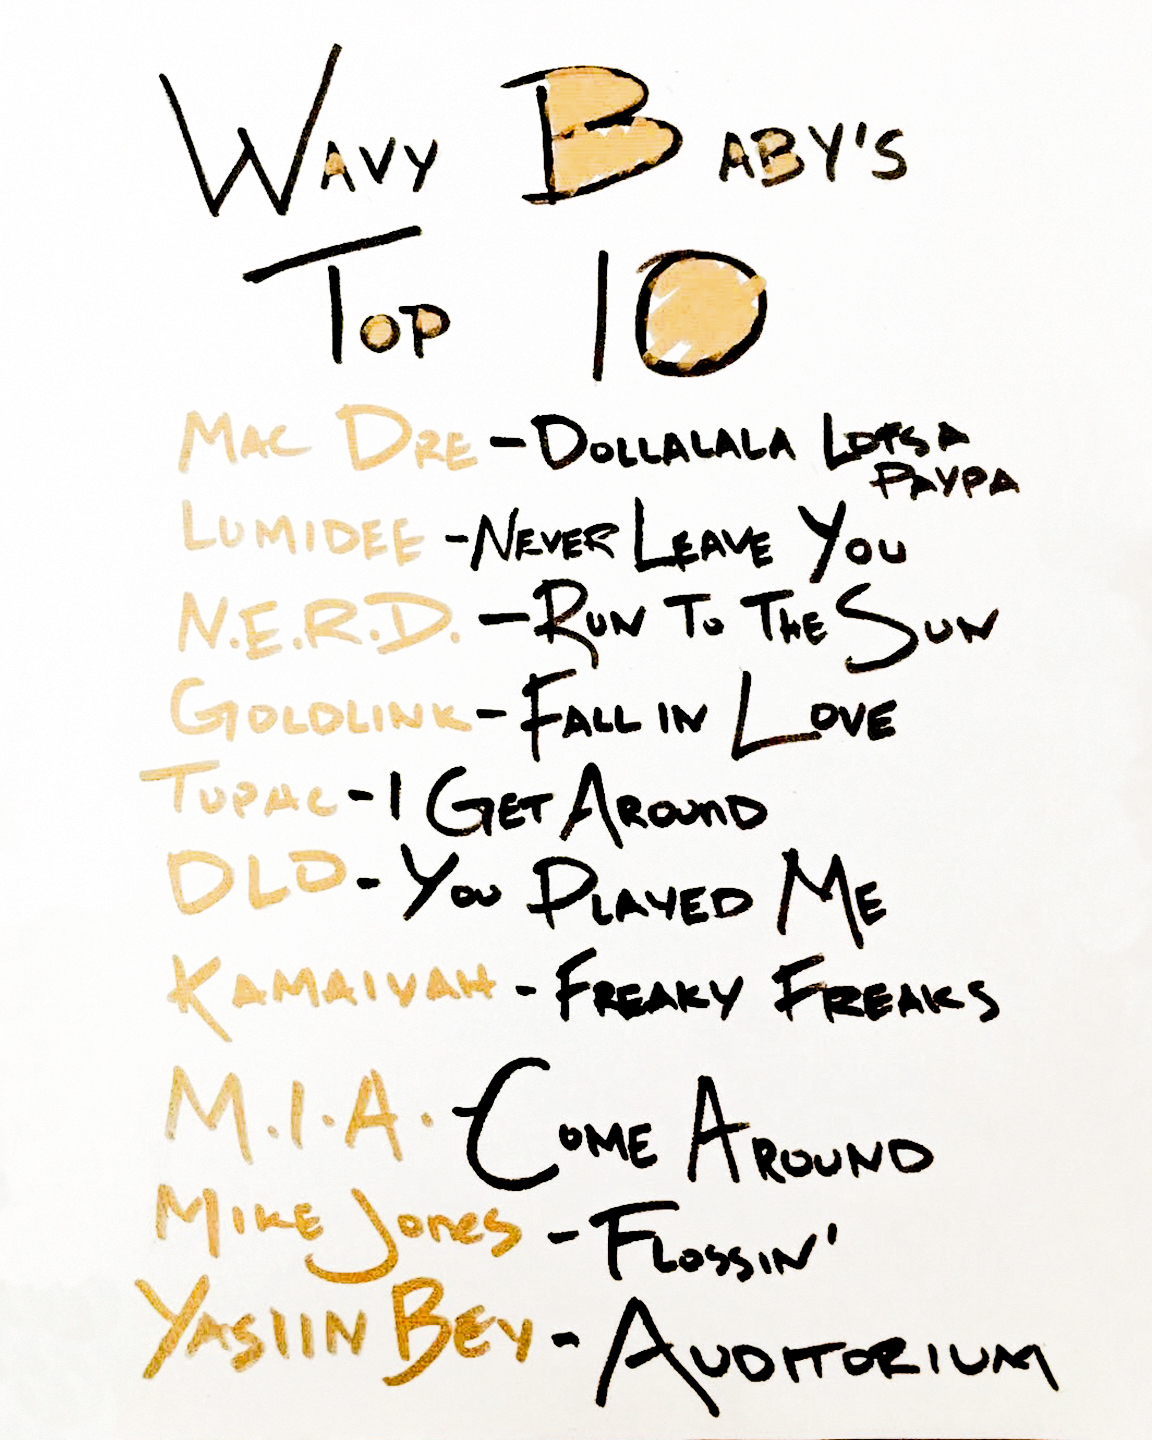 WAVY BABY'S
TOP 10
MAC DRE - DOLLALALA LOTSA
PAYPA
LUMIDEE - NEVER LEAVE YOU
N.E.R.D. - RUN TO THE SUN
GOLDLINK - FALL IN LOVE
TUPAC - I GET AROUND
DLO - YOU PLAYED ME
KAMAIYAH - FREAKY FREAKS
M.I.A. - COME AROUND
MIKE JONES - FLOSSIN'
YASIIN BEY - AUDITORIUM